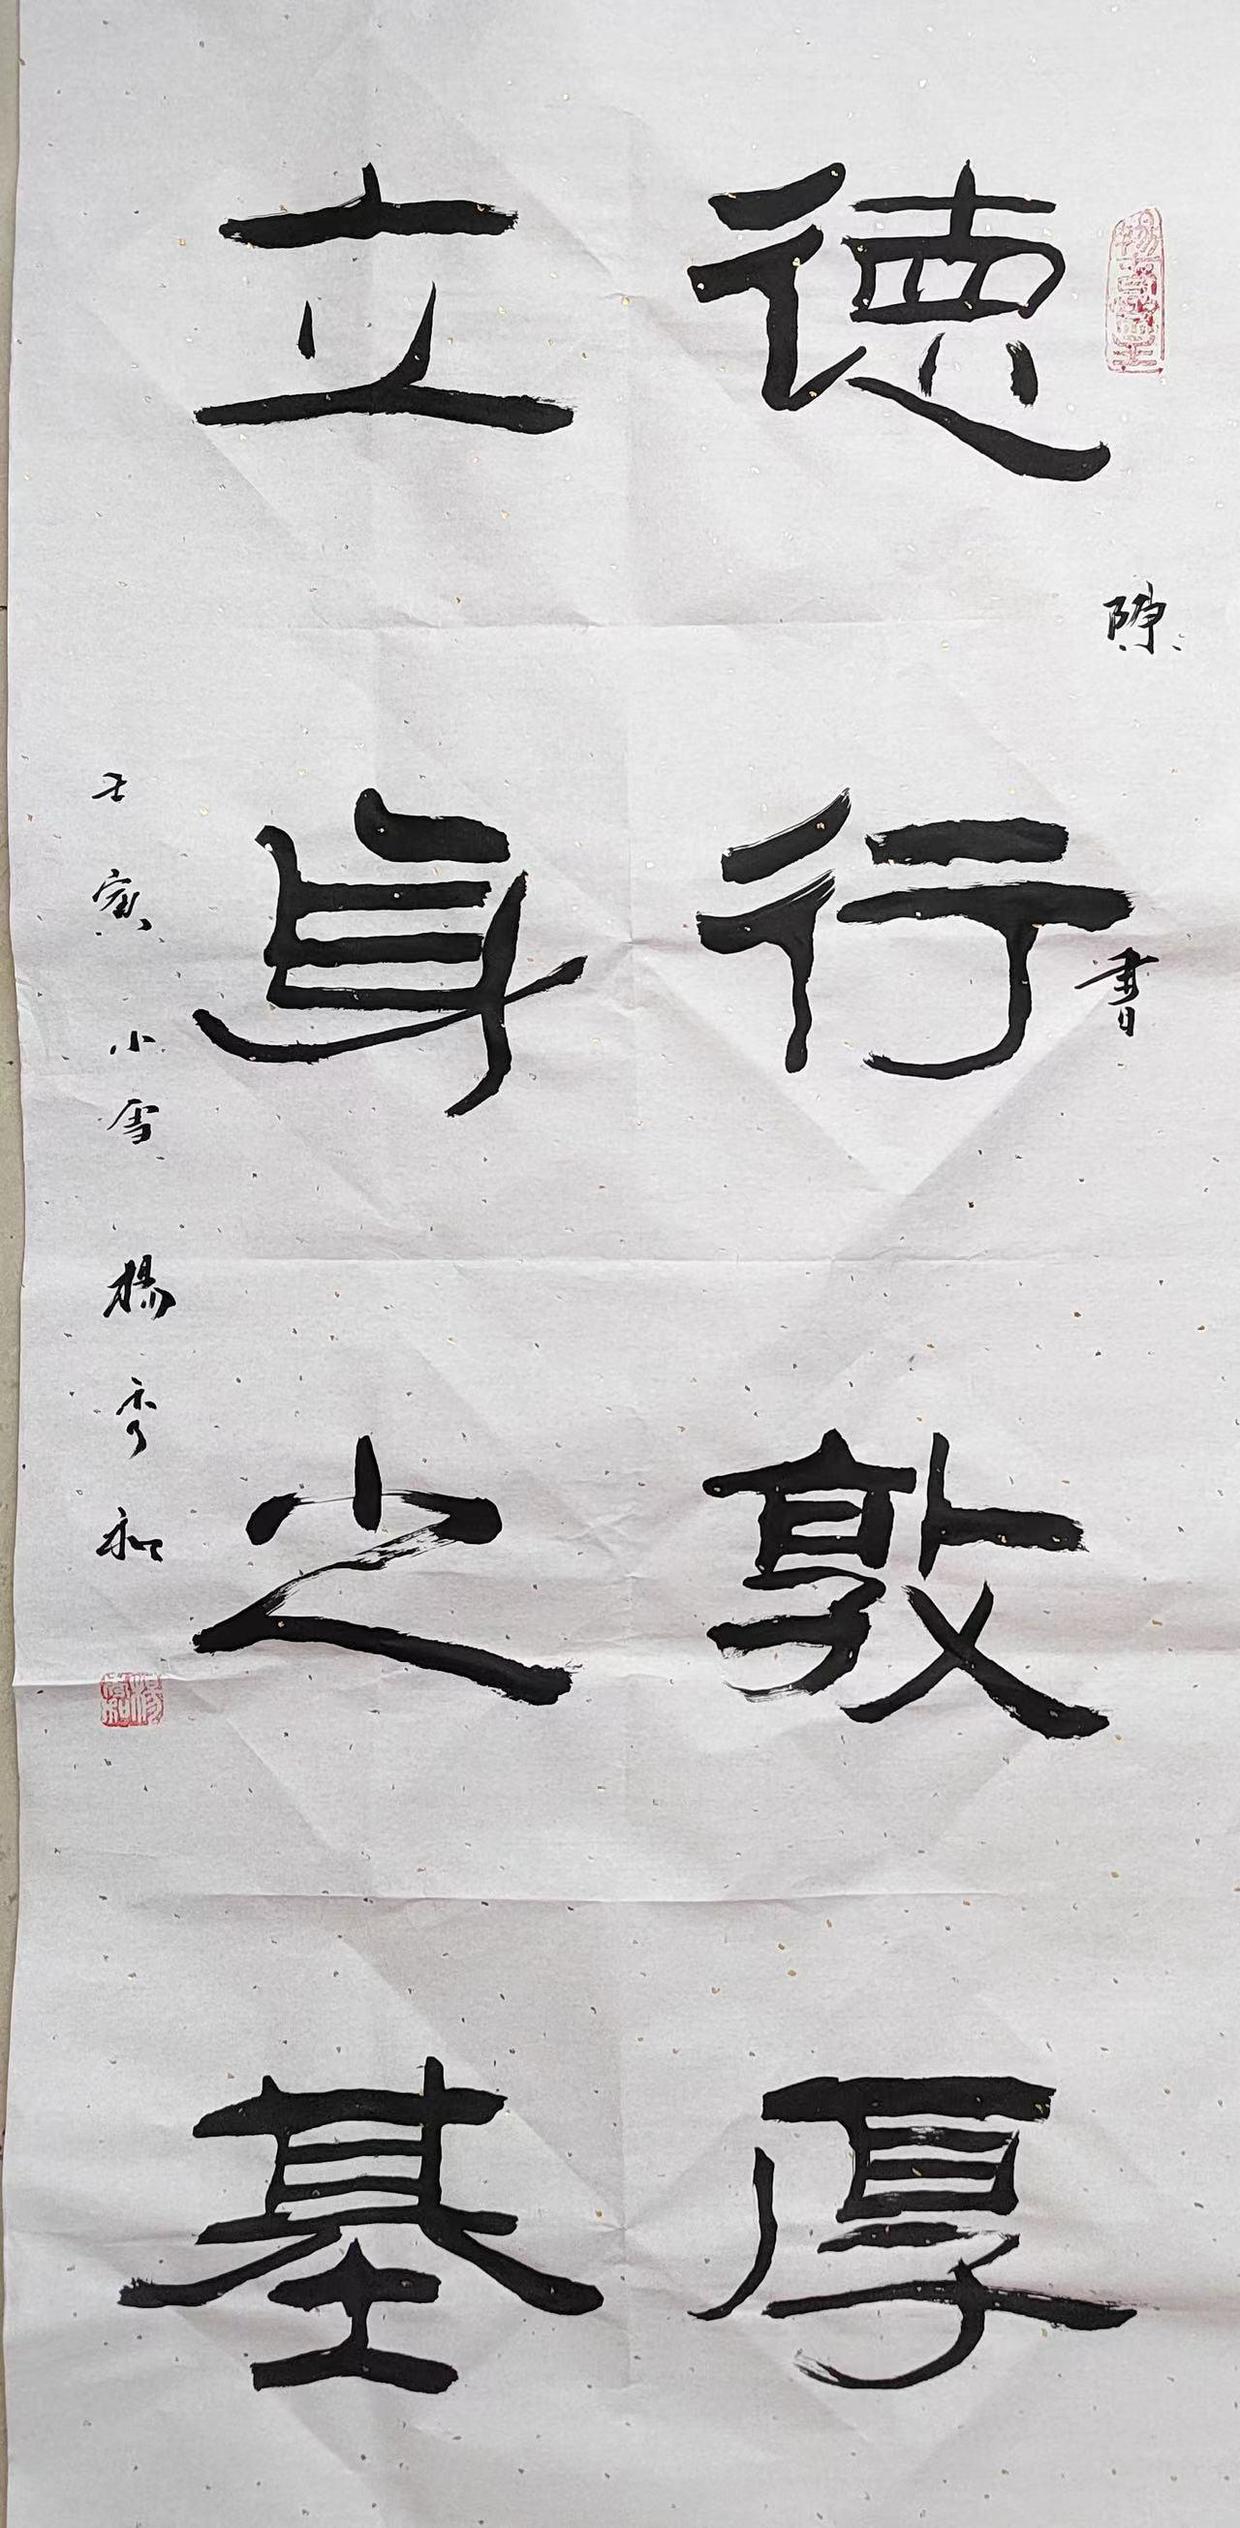 德行敦厚
陳書
立身之基
壬寅小雪楊秀和